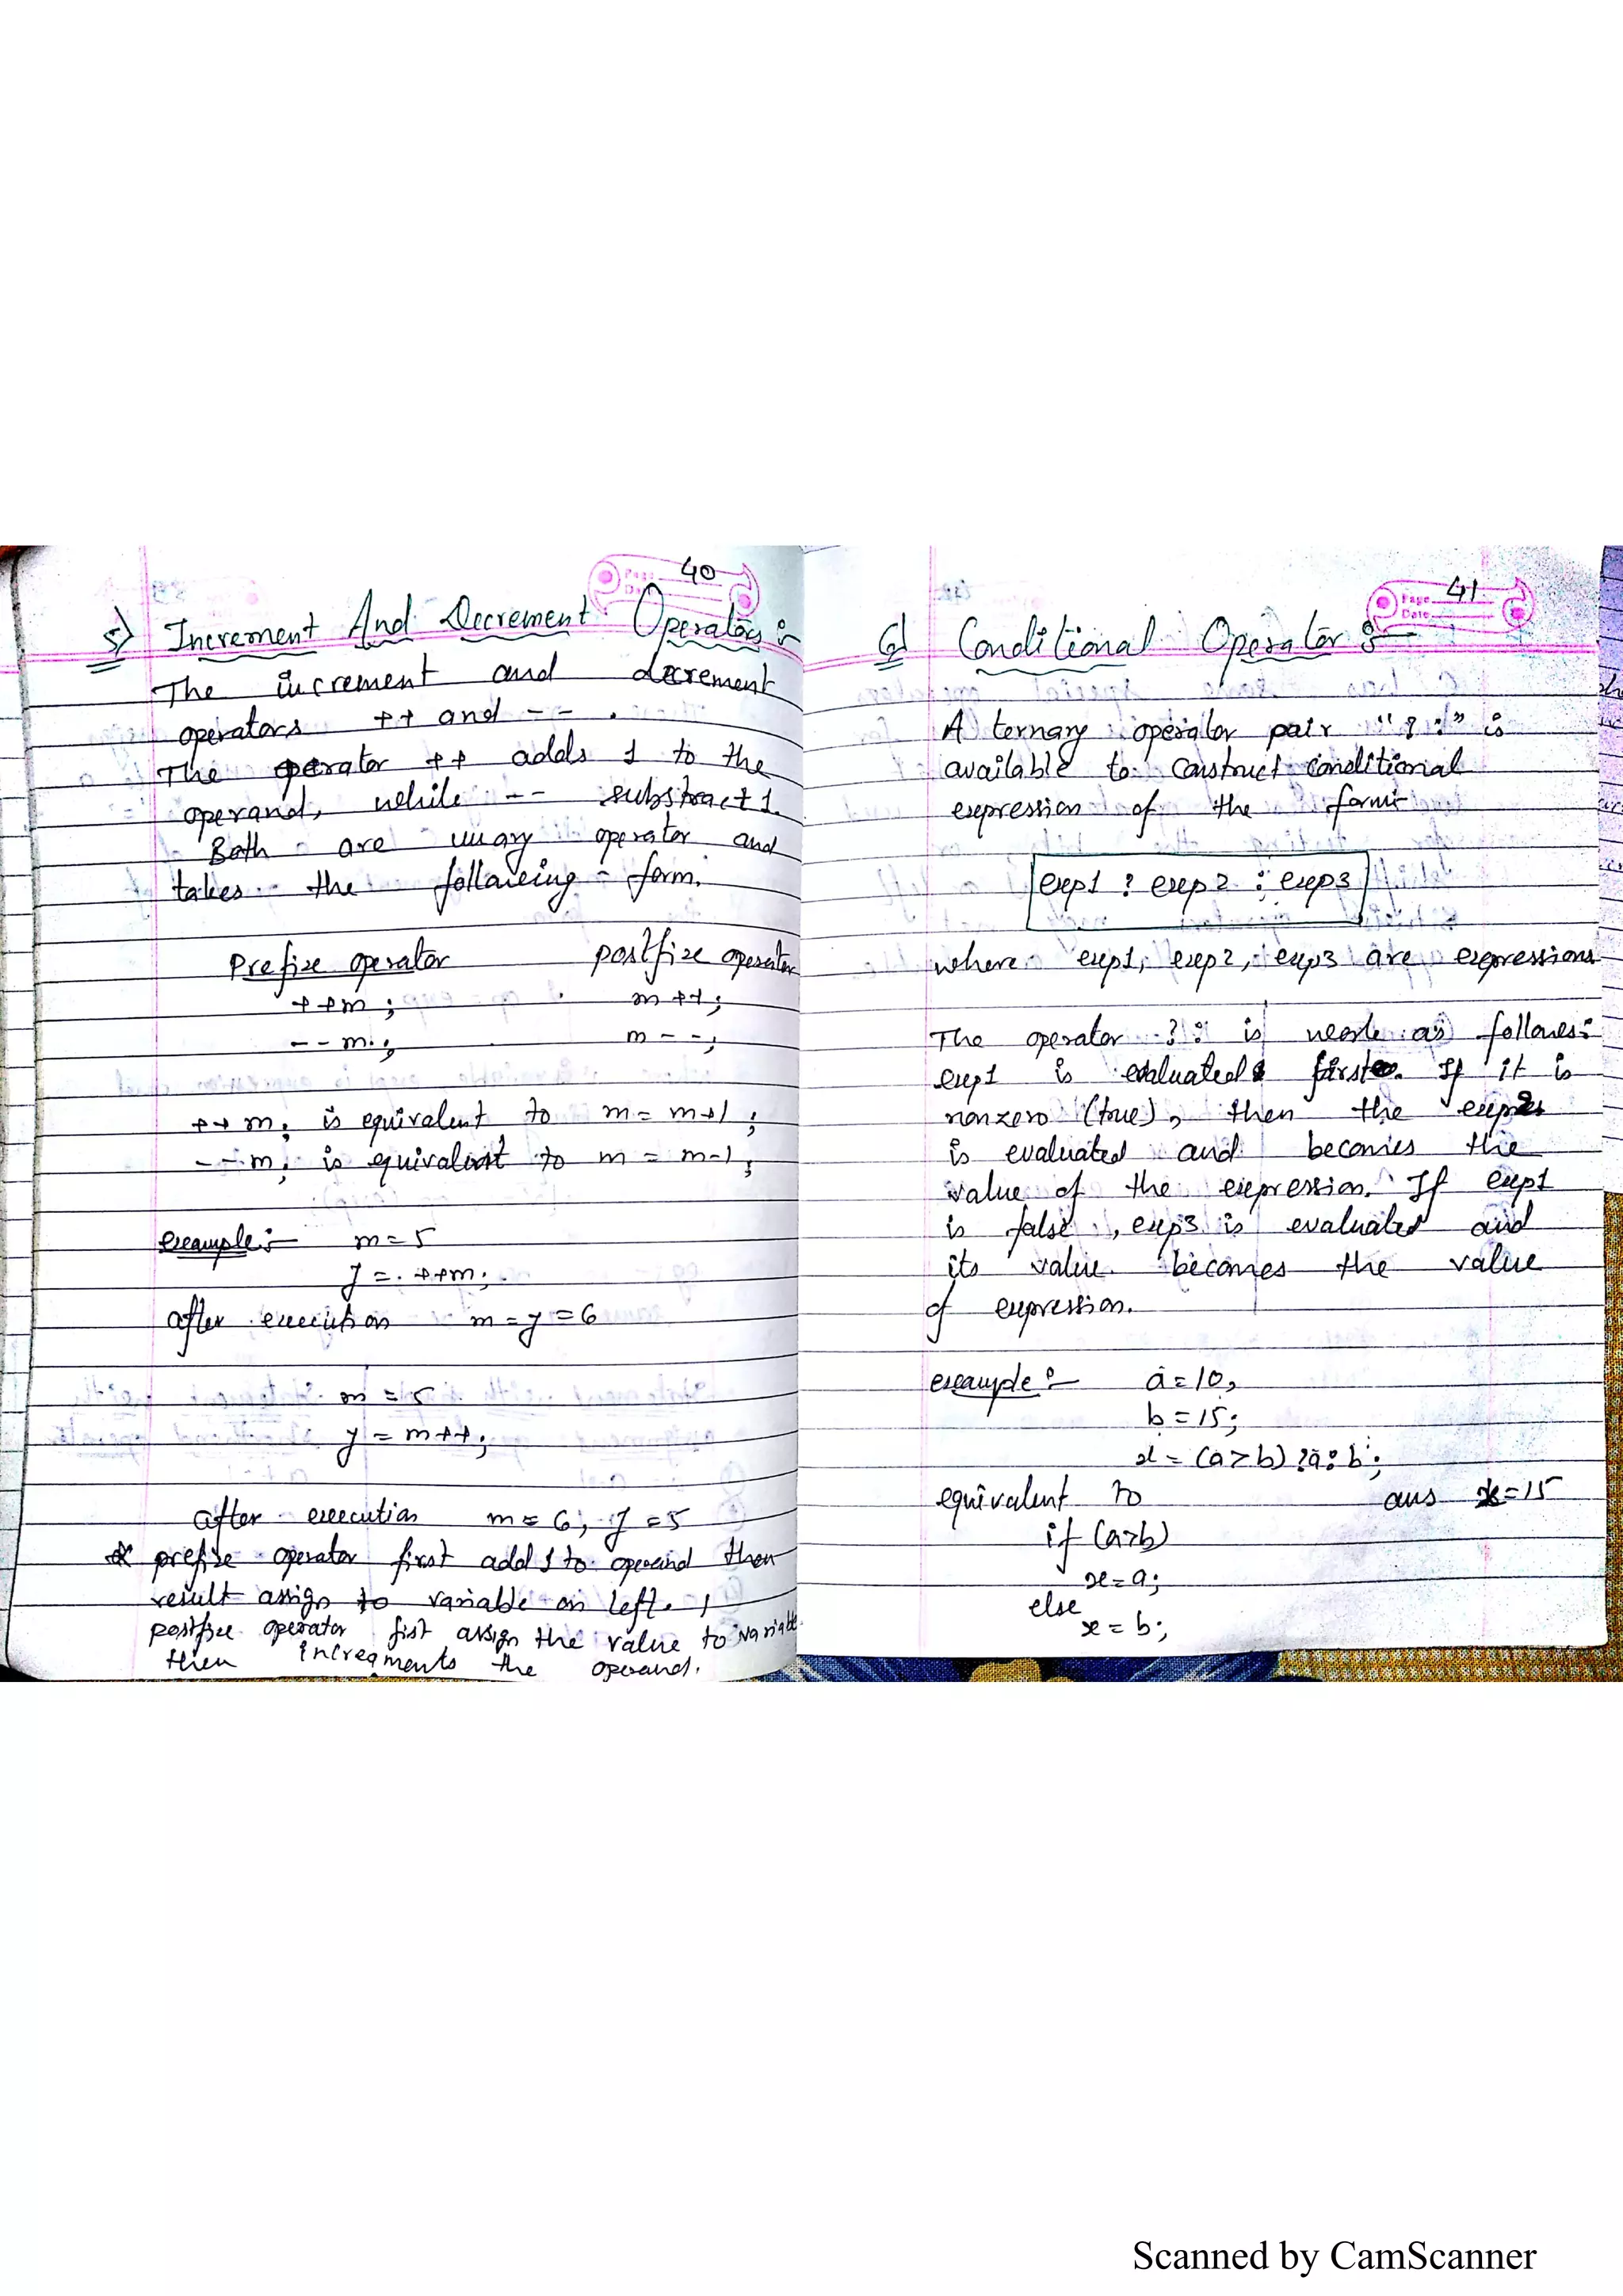 Page 40
5) Increment And Decrement Operators :-
The increment and decrement
operators ++ and -- .
The operator ++ adds 1 to the
operand, while -- substract 1.
Both are unary operator and
takes the following - form.
Prefix operator postfix operator
++m ; m++;
--m ; m--;
++m; is equivalent to m = m+1 ;
--m; is equivalent to m = m-1 ;
example :- m=5
y = ++m;
after execution m=y=6
m = 5
y = m++;
after execution m=6, y=5
* prefix operator first add 1 to operand then
result assign to variable on left.
postfix operator fist assign the value to variable
then increaments the operand.
Page 41
Date
6) Conditional Operator :-
A ternary operator pair "? :" is
available to construct conditional
expression of the form
exp1 ? exp2 : exp3
where exp1, exp2, exp3 are expressions
The operator ?: is work as follows:
exp1 is evaluated first. If it is
nonzero (true), then the exp2
is evaluated and becomes the
value of the expression. If exp1
is false, exp3 is evaluated and
its value becomes the value
of expression.
example :- a=10,
b=15;
x = (a>b) ?a:b;
equivalent to ans x=15
if (a>b)
x=a;
else
x=b;
Scanned by CamScanner